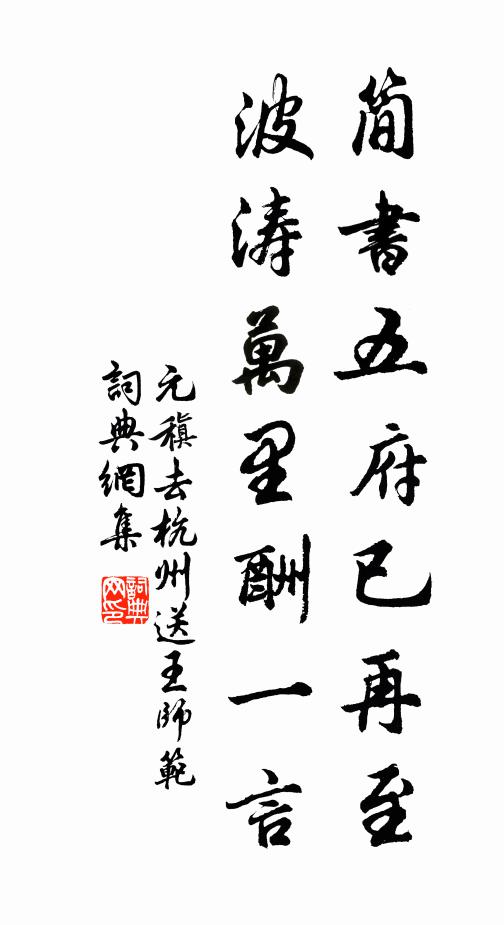 簡書五府已再至
波濤萬里酬一言
元稹去杭州送王師範
詞典網集
詞典網印